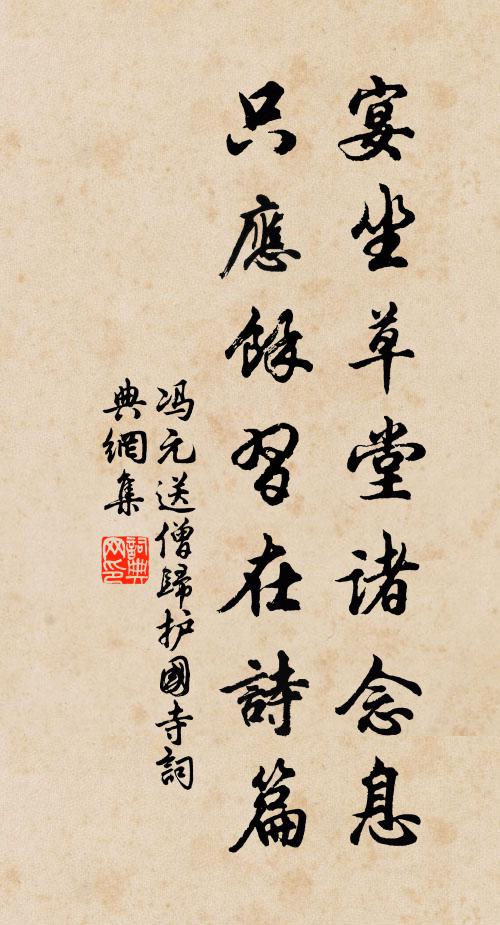 宴坐草堂诸念息
只應餘習在詩篇
冯元送僧歸护國寺詞
典網集
詞典
网印